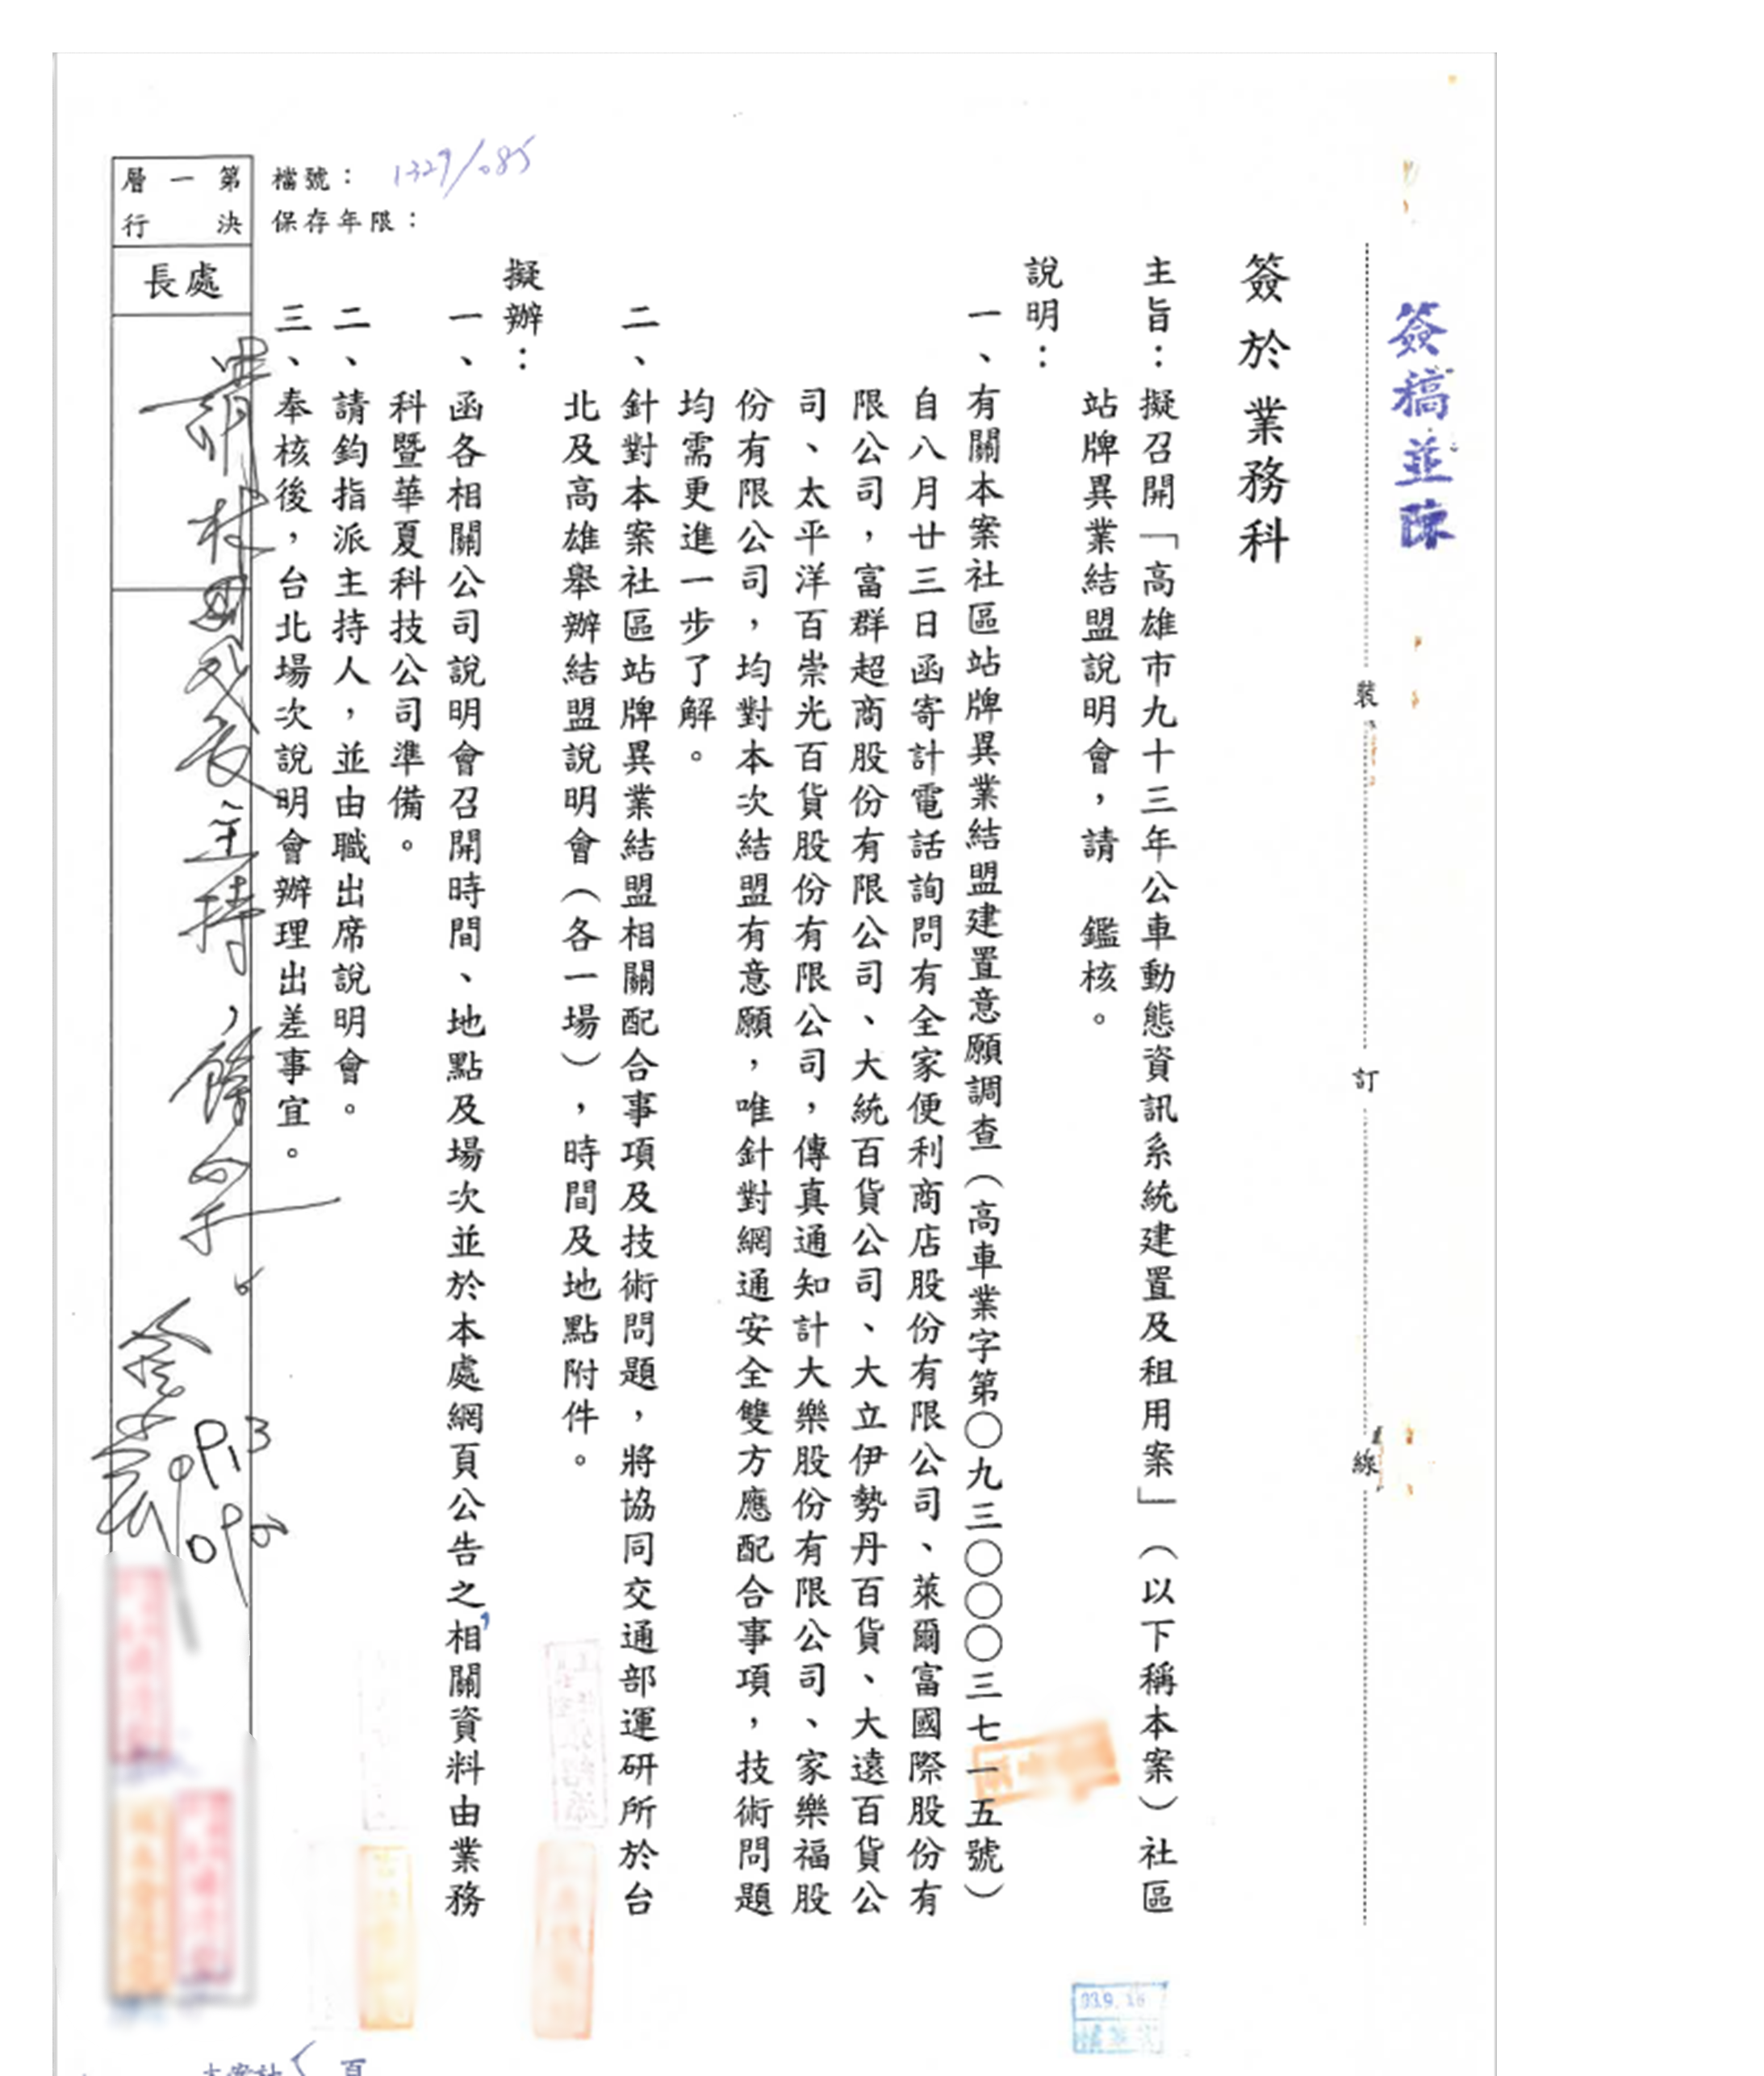 簽稿並陳
裝
訂
線
簽於業務科
主旨：擬召開「高雄市九十三年公車動態資訊系統建置及租用案」（以下稱本案）社區
站牌異業結盟說明會，請　鑑核。
說明：
一、有關本案社區站牌異業結盟建置意願調查（高車業字第〇九三〇〇〇三七一五號）
自八月廿三日函寄計電話詢問有全家便利商店股份有限公司、萊爾富國際股份有
限公司，富群超商股份有限公司、大統百貨公司、大立伊勢丹百貨、大遠百貨公
司、太平洋百崇光百貨股份有限公司，傳真通知計大樂股份有限公司、家樂福股
份有限公司，均對本次結盟有意願，唯針對網通安全雙方應配合事項，技術問題
均需更進一步了解。
二、針對本案社區站牌異業結盟相關配合事項及技術問題，將協同交通部運研所於台
北及高雄舉辦結盟說明會（各一場），時間及地點附件。
擬辦：
一、函各相關公司說明會召開時間、地點及場次並於本處網頁公告之，相關資料由業務
科暨華夏科技公司準備。
二、請鈞指派主持人，並由職出席說明會。
三、奉核後，台北場次說明會辦理出差事宜。
檔號：1329/085
保存年限：
第一層
決行
處長
主持，餘如
93.9.16
頁